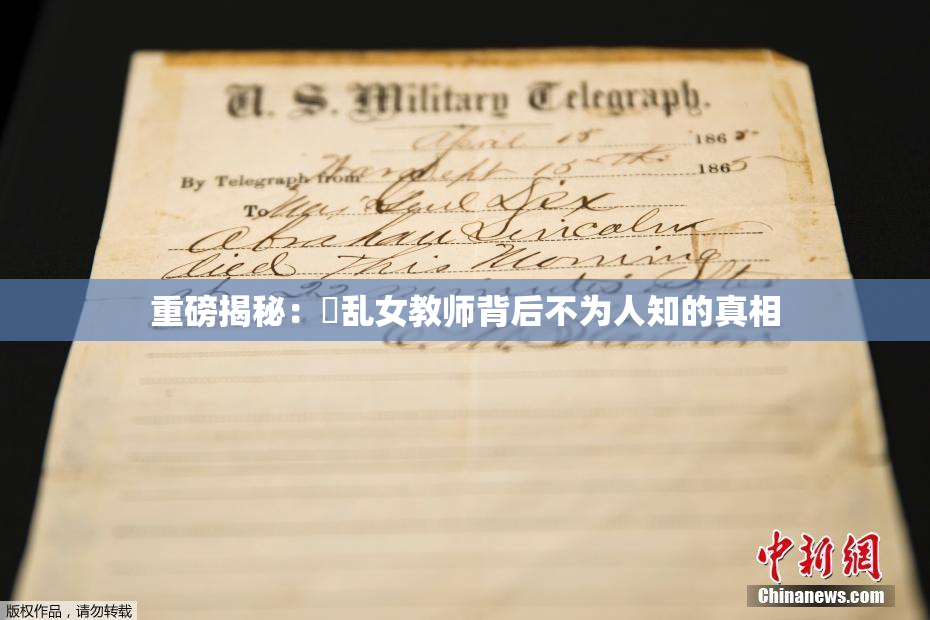 U. S. Military Telegraph.
April 15 1865
By Telegraph from War Dept 15th 1865
To Maj Genl Dix
Abraham Lincoln
died This Morning
at 22 minutes after
重磅揭秘：乱女教师背后不为人知的真相
E. M. Stanton
中新網
Chinanews.com
版权作品，请勿转载